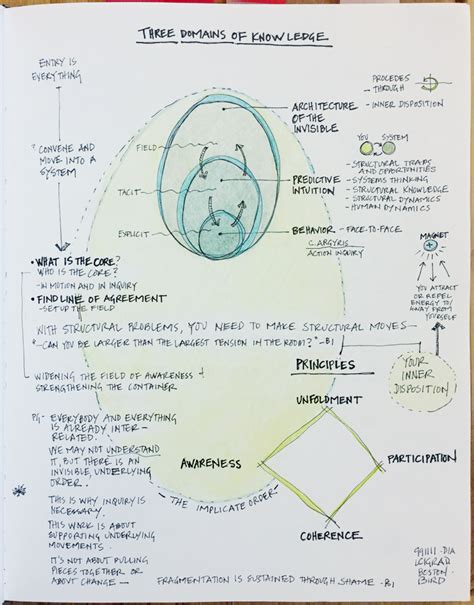 THREE DOMAINS OF KNOWLEDGE
ENTRY IS
EVERYTHING
? CONVENE AND
MOVE INTO A
SYSTEM
FIELD
TACIT
EXPLICIT
ARCHITECTURE
OF THE
INVISIBLE
PREDICTIVE
INTUITION
BEHAVIOR - FACE-TO-FACE
C. ARGYRIS
ACTION INQUIRY
PROCEDES
THROUGH
- INNER DISPOSITION
YOU SYSTEM
- STRUCTURAL TRAPS
AND OPPORTUNITIES
- SYSTEMS THINKING
- STRUCTURAL KNOWLEDGE
- STRUCTURAL DYNAMICS
- HUMAN DYNAMICS
MAGNET
YOU ATTRACT
OR REPEL
ENERGY TO/
AWAY FROM
YOURSELF
• WHAT IS THE CORE?
WHO IS THE CORE?
- IN MOTION AND IN INQUIRY
• FIND LINE OF AGREEMENT
- SET UP THE FIELD
WITH STRUCTURAL PROBLEMS, YOU NEED TO MAKE STRUCTURAL MOVES
"CAN YOU BE LARGER THAN THE LARGEST TENSION IN THE ROOM?" - BI
WIDENING THE FIELD OF AWARENESS
STRENGTHENING THE CONTAINER
PRINCIPLES
YOUR
INNER
DISPOSITION
UNFOLDMENT
AWARENESS
PARTICIPATION
COHERENCE
PG - EVERYBODY AND EVERYTHING
IS ALREADY INTER-
RELATED.
WE MAY NOT UNDERSTAND
IT, BUT THERE IS AN
INVISIBLE, UNDERLYING
ORDER.
THIS IS WHY INQUIRY IS
NECESSARY.
THIS WORK IS ABOUT
SUPPORTING UNDERLYING
MOVEMENTS.
IT'S NOT ABOUT PULLING
PIECES TOGETHER OR
ABOUT CHANGE
- THE IMPLICATE ORDER -
FRAGMENTATION IS SUSTAINED THROUGH SHAME - BI
991111 - DIA
BOSTON
BIRD